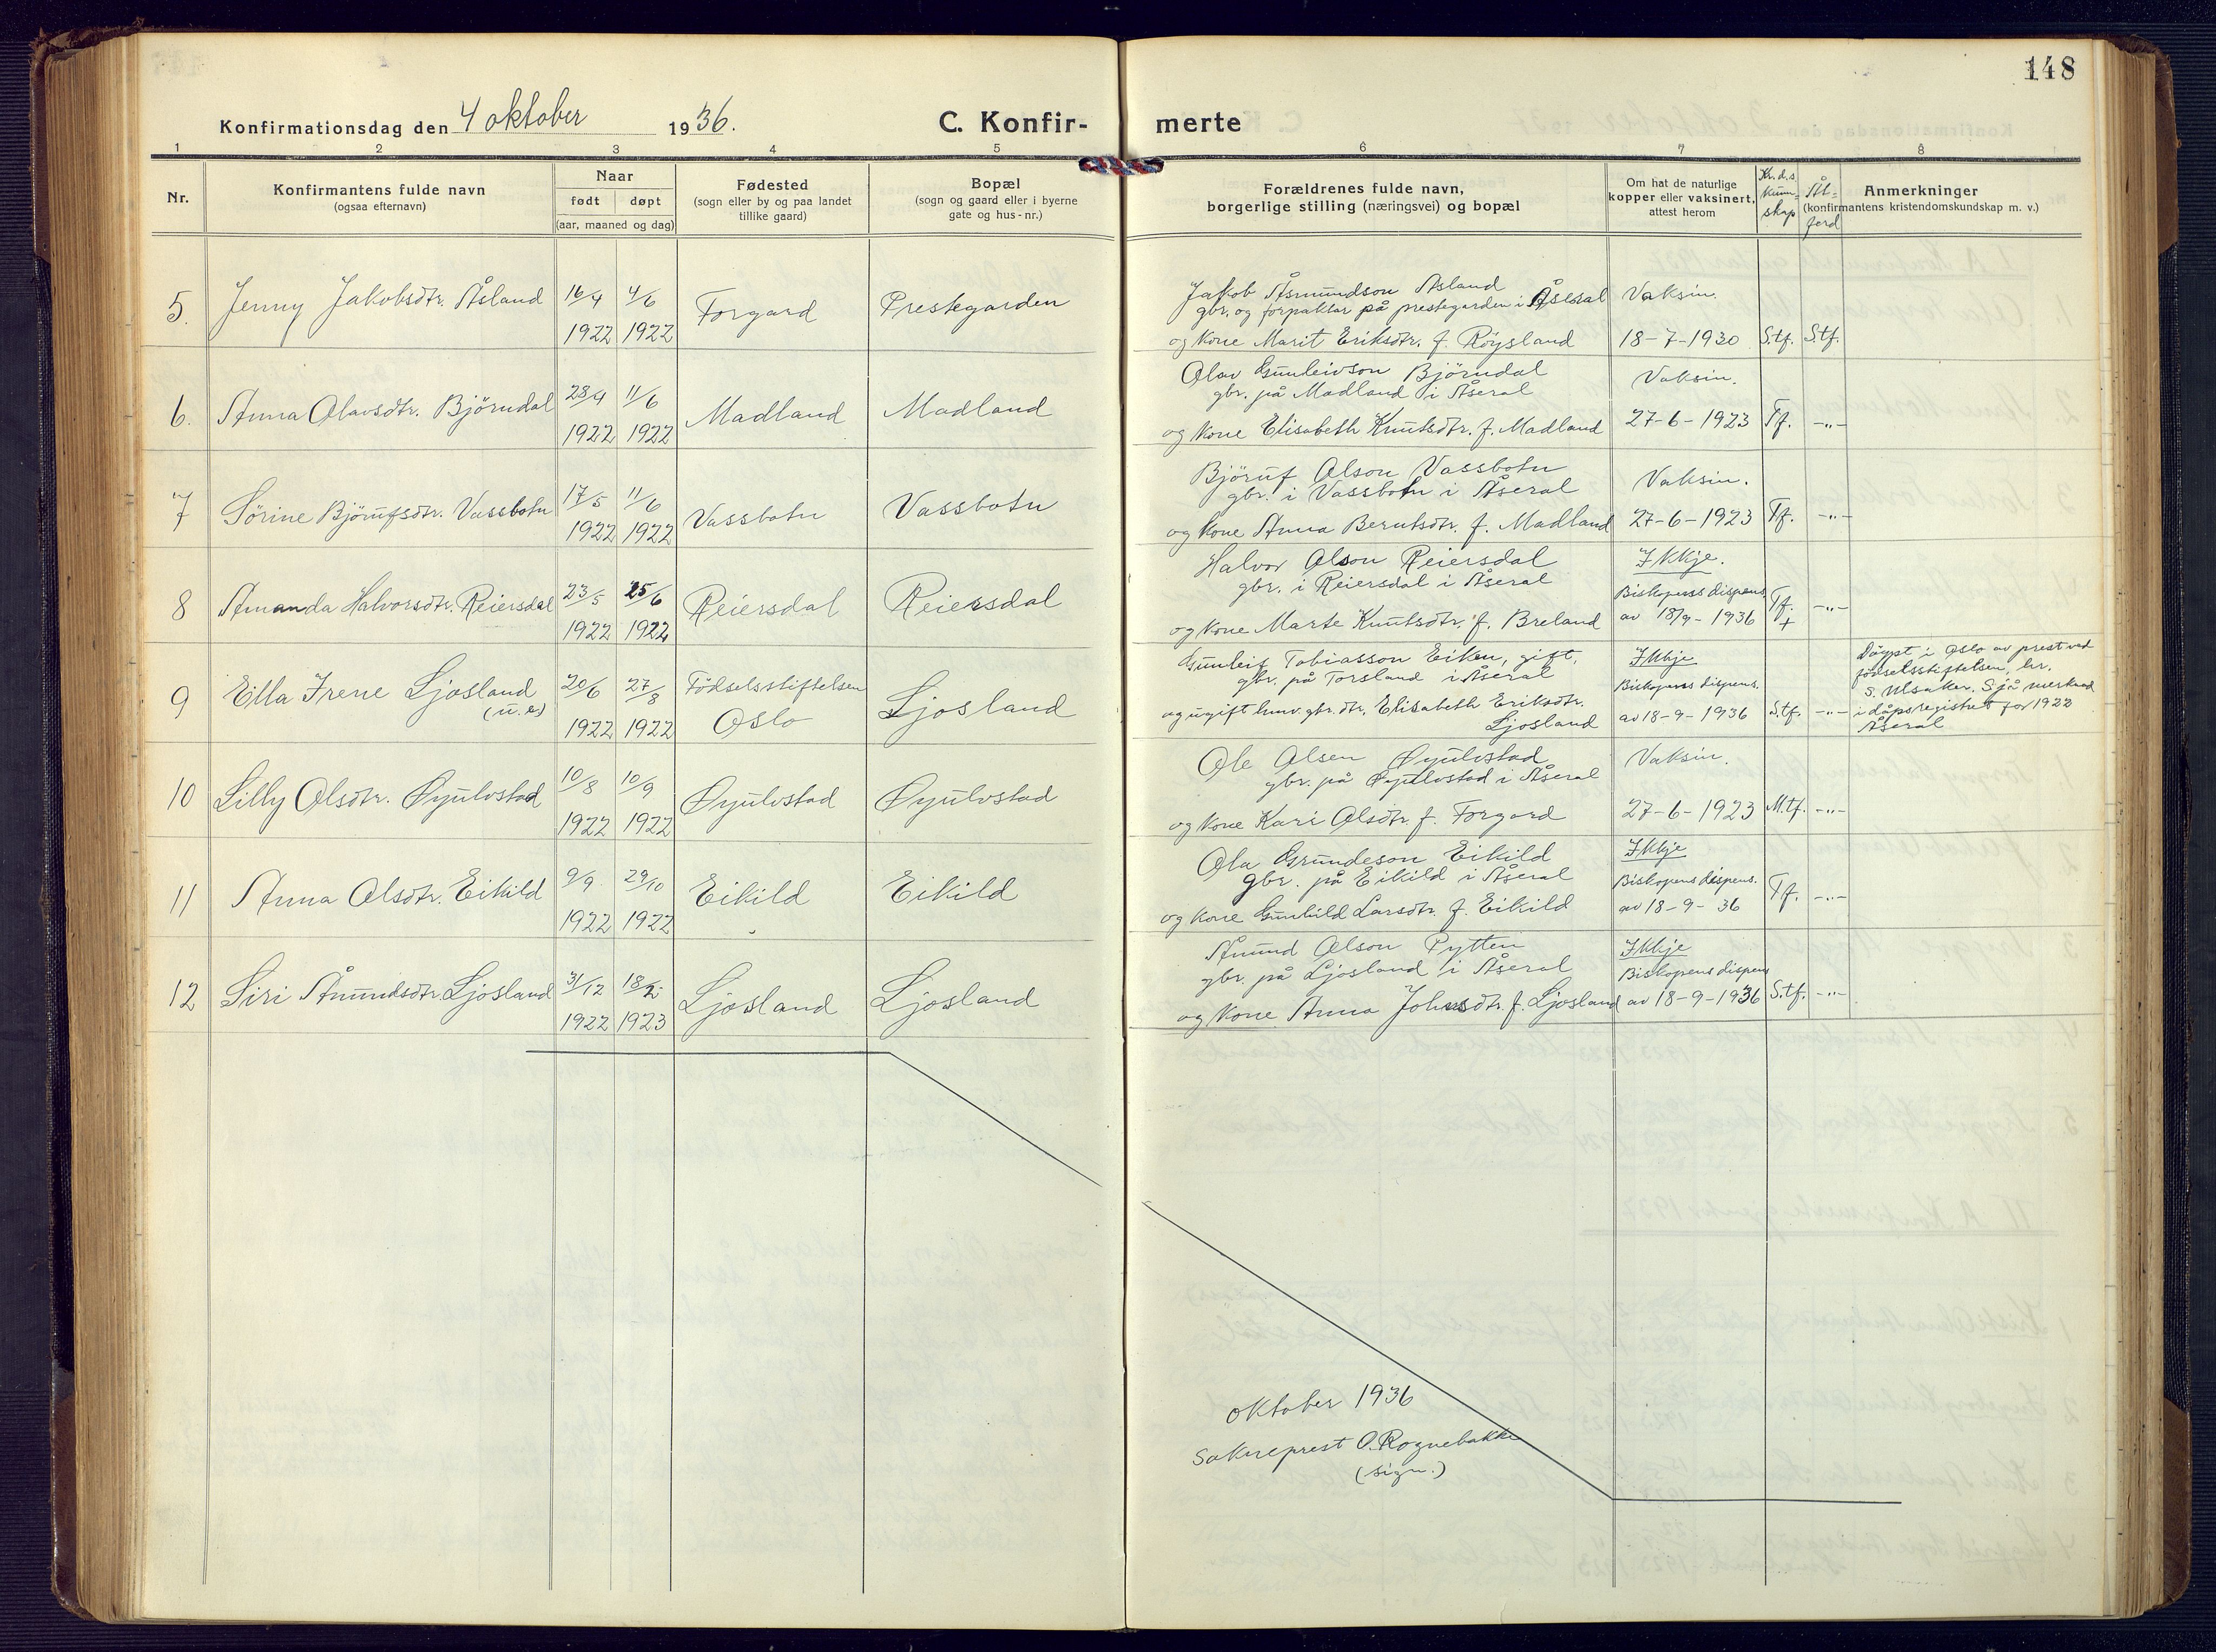 148
Konfirmationsdag den 4 oktober 1936. C. Konfir- merte
1 2 3 4 5 6 7 8
Nr.
Konfirmantens fulde navn
(ogsaa efternavn)
Naar
født døpt
(aar, maaned og dag)
Fødested
(sogn eller by og paa landet
tillike gaard)
Bopæl
(sogn og gaard eller i byerne
gate og hus-nr.)
Forældrenes fulde navn,
borgerlige stilling (næringsvei) og bopæl
Om hat de naturlige
kopper eller vaksinert,
attest herom
Kr.d.s
kunn-
skap
Åt-
ferd
Anmerkninger
(konfirmantens kristendomskundskap m. v.)
5. Jenny Jakobsdtr. Åsland 16/4 1922 4/6 1922 Forgard Prestegarden
Jakob Åsmundson Åsland
gbr. og forpaktar på prestegarden i Åseral
og kone Marit Eriksdtr. f. Röysland
Vaksin.
18-7-1930 S.tf. S.tf.
6. Anna Olavsdtr. Björndal 28/4 1922 11/6 1922 Madland Madland
Olav Gunleivson Björndal
gbr. på Madland i Åseral
og kone Elisabeth Knutsdtr. f. Madland
Vaksin.
27-6-1923 Tf. -"-
7 Sörine Björnufsdtr. Vassbotn 17/5 1922 11/6 1922 Vassbotn Vassbotn
Björnuf Olson Vassbotn
gbr. i Vassbotn i Åseral
og kone Anna Berntsdtr. f. Madland
Vaksin.
27-6-1923 Tf. -"-
8 Amanda Halvorsdtr. Reiersdal 23/5 1922 25/6 1922 Reiersdal Reiersdal
Halvor Olson Reiersdal
gbr. i Reiersdal i Åseral
og kone Marte Knutsdtr. f. Breland
Ikkje.
Biskopens dispens
av 18/9-1936 Tf. + -"-
9 Ella Irene Ljosland
(u.e)
20/6 1922 27/8 1922
Födselsstiftelsen
Oslo
Ljosland
Gunleif Tobiasson Eiken, gift.
gbr. på Torsland i Åseral
og ugift hunv. gbr. dtr. Elisabeth Eriksdtr.
Ljosland
Ikkje
Biskopens dispens.
av 18-9-1936 S.tf. -"-
Döypt i Oslo av prest ved
födselsstiftelsen, hr.
S. Ulsaker. Sjå merknad
i dåpsregistret for 1922
Åseral
10 Lilly Olsdtr. Øyulvstad 10/8 1922 10/9 1922 Øyulvstad Øyulvstad
Ole Olsen Øyulvstad
gbr. på Øyulvstad i Åseral
og kone Kari Olsdtr. f. Forgard
Vaksin.
27-6-1923 M.tf. -"-
11 Anna Olsdtr. Eikild 9/9 1922 29/10 1922 Eikild Eikild
Ola Grundeson Eikild
gbr. på Eikild i Åseral
og kone Gunhild Larsdtr. f. Eikild
Ikkje
Biskopens dispens.
av 18-9-36 Tf. -"-
12 Siri Åmundsdtr. Ljosland 31/12 1922 18/2 1923 Ljosland Ljosland
Åmund Olson Pytten
gbr. på Ljosland i Åseral
og kone Anna Johnsdtr. f. Ljosland
Ikkje
Biskopens dispens
av 18-9-1936 S.tf. -"-
oktober 1936
Sokneprest O. Rognebakke
(sign.)